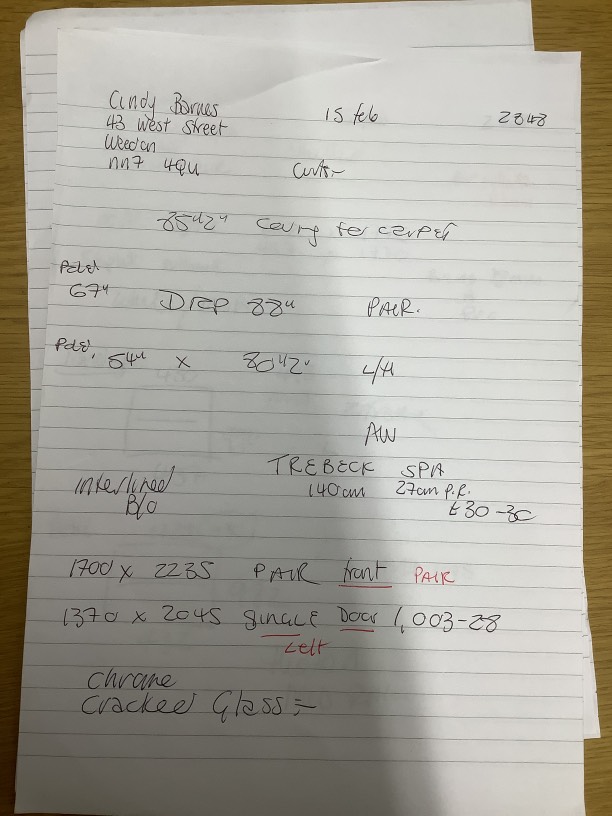 Cindy Barnes 15 feb 2848
43 West Street
Weedon
nn7 4QU Curts:-
85"½" Ceiling to carpet
Pole
67" Drop 88" PAIR.
Pole. 54" x 80"½" L/H
AW
TREBECK SPA
interlined 140cm 27cm P.R.
B/O £30-30
1700 x 2235 PAIR front PAIR
1370 x 2045 SINGLE Door 1,003-28
Left
Chrome
Cracked Glass:-